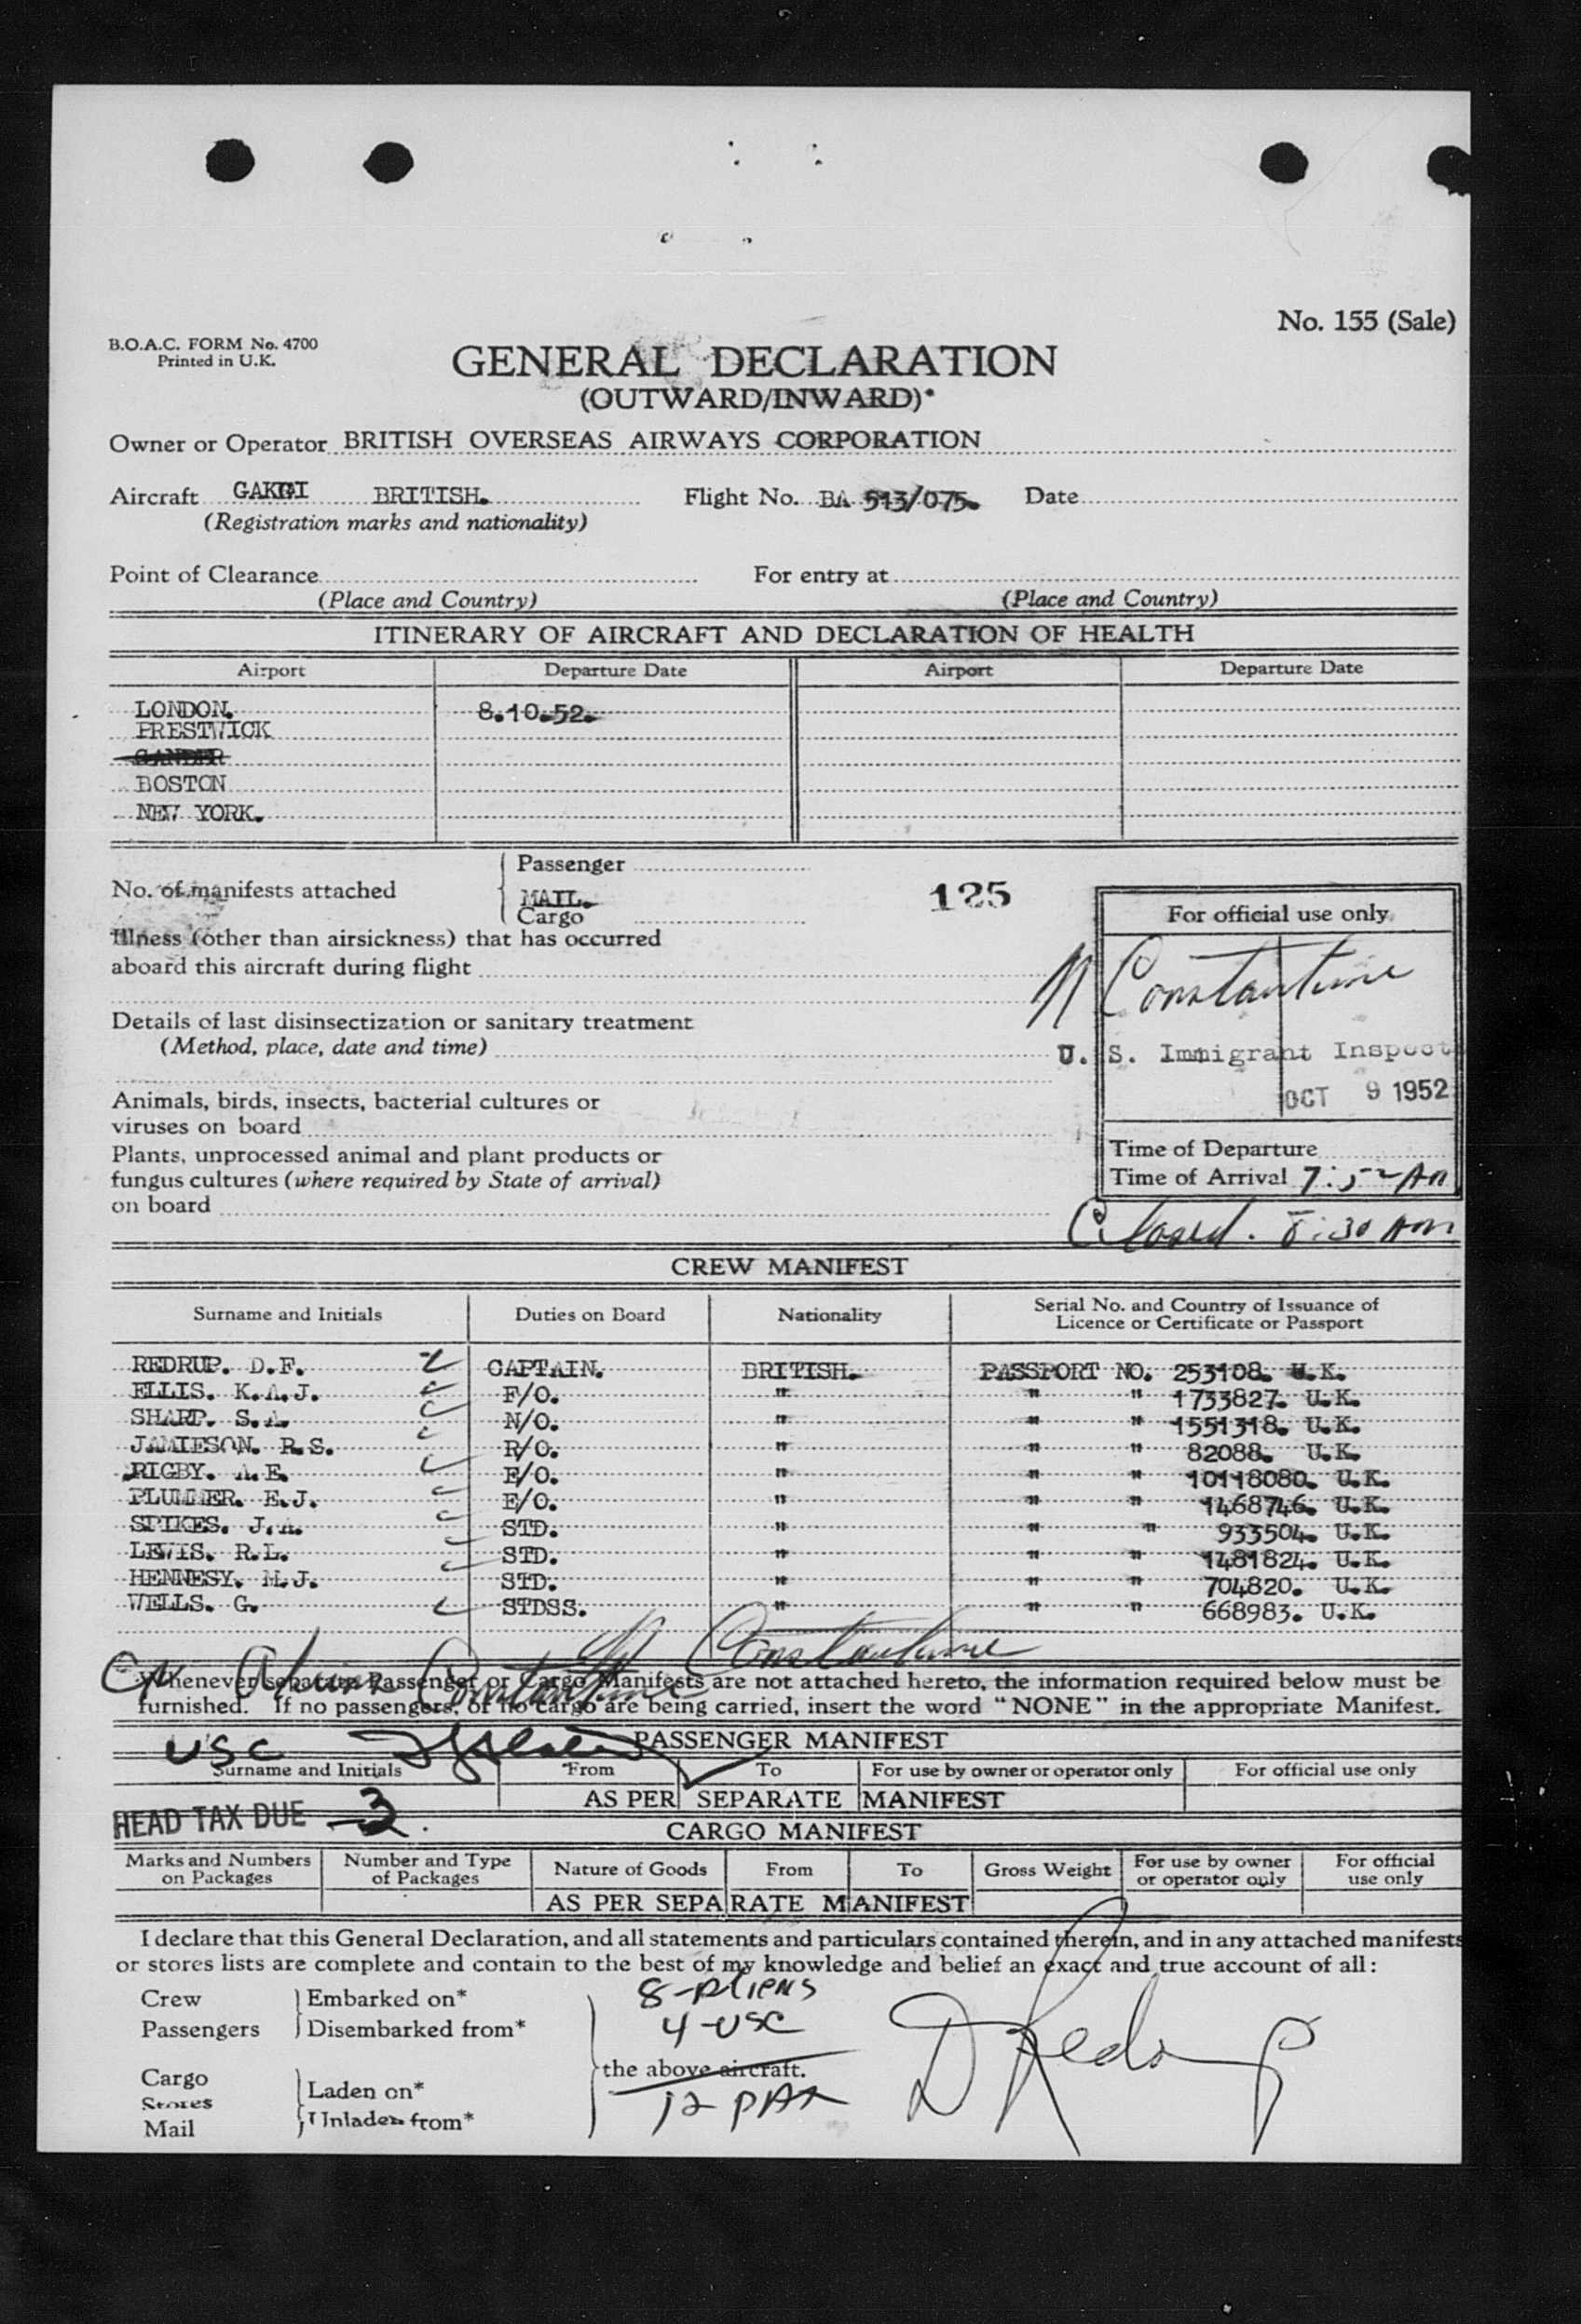 No. 155 (Sale)
B.O.A.C. FORM No. 4700
Printed in U.K.
GENERAL DECLARATION
(OUTWARD/INWARD)*
Owner or Operator BRITISH OVERSEAS AIRWAYS CORPORATION
Aircraft BRITISH. Flight No. BA 513/075. Date
(Registration marks and nationality)
Point of Clearance For entry at
(Place and Country) (Place and Country)
ITINERARY OF AIRCRAFT AND DECLARATION OF HEALTH
Airport Departure Date Airport Departure Date
LONDON. 8.10.52.
PRESTWICK
GANDER
BOSTON
NEW YORK.
Passenger
No. of manifests attached MAIL. 125
Cargo
For official use only
Illness (other than airsickness) that has occurred
aboard this aircraft during flight
N Constantine
Details of last disinsectization or sanitary treatment
(Method, place, date and time)
U. S. Immigrant Inspect
OCT 9 1952
Animals, birds, insects, bacterial cultures or
viruses on board
Plants, unprocessed animal and plant products or
fungus cultures (where required by State of arrival)
on board
Time of Departure
Time of Arrival 7:52 AM
Closed. 8:30 AM
CREW MANIFEST
Surname and Initials Duties on Board Nationality Serial No. and Country of Issuance of
Licence or Certificate or Passport
REDRUP. D.F. CAPTAIN. BRITISH. PASSPORT NO. 253108. U.K.
ELLIS. K.A.J. F/O. " " " 1733827. U.K.
SHARP. S.A. N/O. " " " 1551318. U.K.
JAMIESON. R.S. R/O. " " " 82088. U.K.
RIGBY. A.E. E/O. " " " 10118080. U.K.
PLUMMER. E.J. E/O. " " " 1468746. U.K.
SPIKES. J.A. STD. " " " 933504. U.K.
LEWIS. R.L. STD. " " " 1481824. U.K.
HENNESY. M.J. STD. " " " 704820. U.K.
WELLS. G. STDSS. " " " 668983. U.K.
N Constantine
Whenever separate Passenger or Cargo Manifests are not attached hereto, the information required below must be
furnished. If no passengers, or no cargo are being carried, insert the word "NONE" in the appropriate Manifest.
USC
PASSENGER MANIFEST
Surname and Initials From To For use by owner or operator only For official use only
AS PER SEPARATE MANIFEST
HEAD TAX DUE 3.
CARGO MANIFEST
Marks and Numbers on Packages Number and Type of Packages Nature of Goods From To Gross Weight For use by owner or operator only For official use only
AS PER SEPARATE MANIFEST
I declare that this General Declaration, and all statements and particulars contained therein, and in any attached manifests
or stores lists are complete and contain to the best of my knowledge and belief an exact and true account of all:
Crew Embarked on* 8-Aliens
Passengers Disembarked from* 4-USC
the above aircraft.
Cargo Laden on* 12 PAX
Stores
Mail Unladen from*